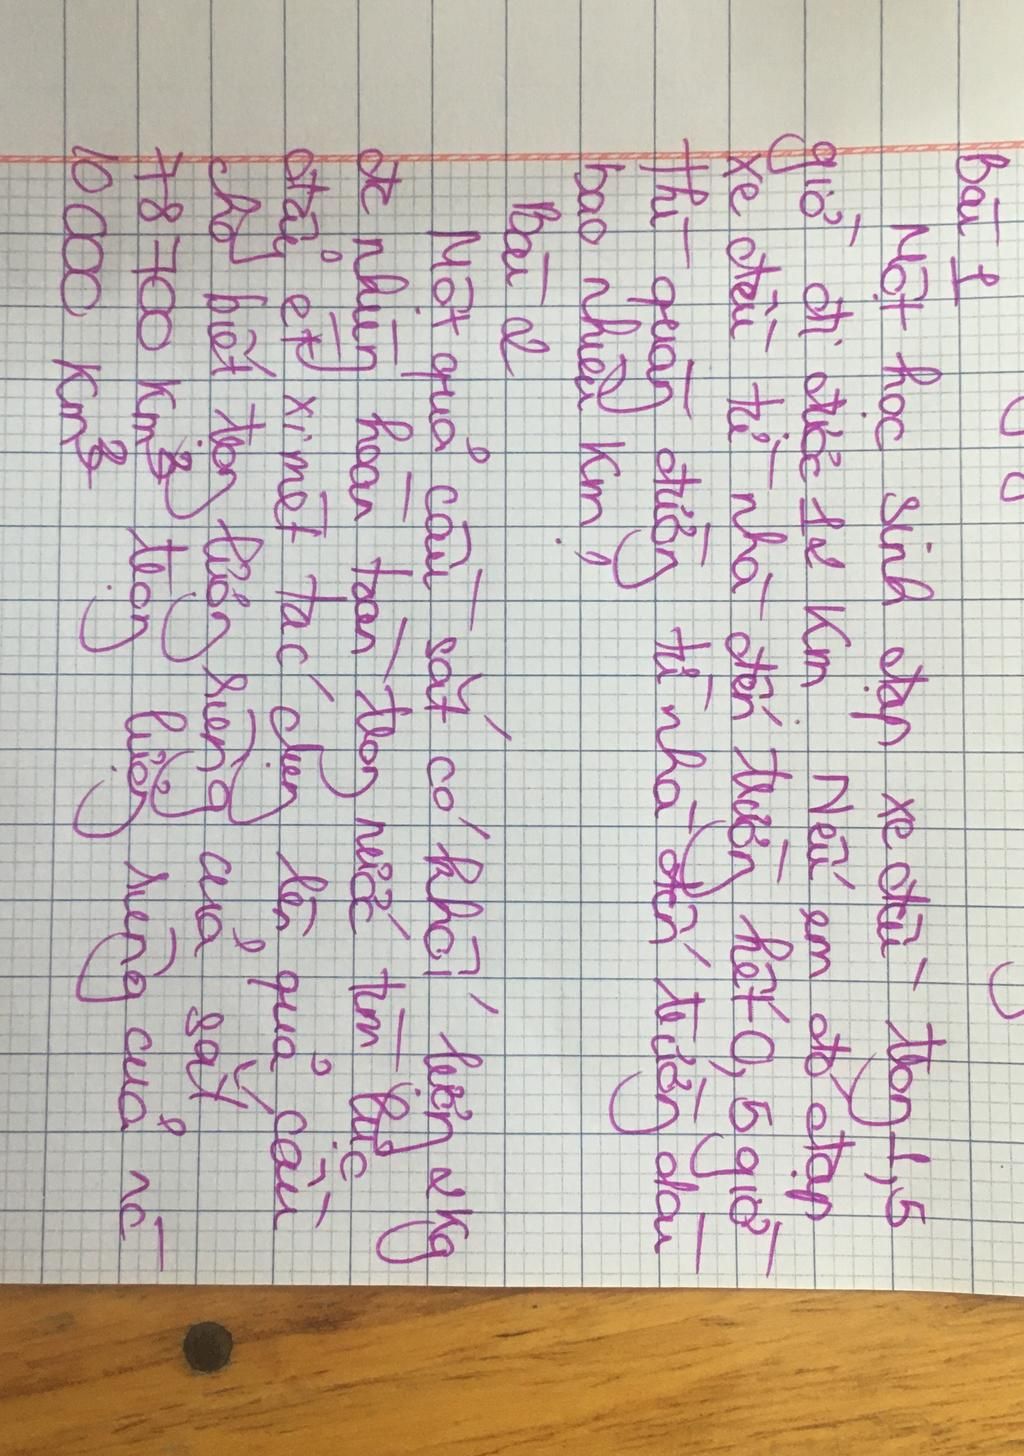 Bài 1
Một học sinh đạp xe đều trong 1,5
giờ đi được 12 Km. Nếu em đó đạp
xe đều từ nhà đến trường hết 0,5 giờ
thì quãng đường từ nhà đến trường dài
bao nhiêu Km?
Bài 2
Một quả cầu sắt có khối lượng 2 Kg
đc nhún hoàn toàn trong nước tìm lực
đẩy ét xi mét tác dụng lên quả cầu
cho biết trọng lượng riêng của sắt
78700 Km3 trọng lượng riêng của nc
10 000 Km3